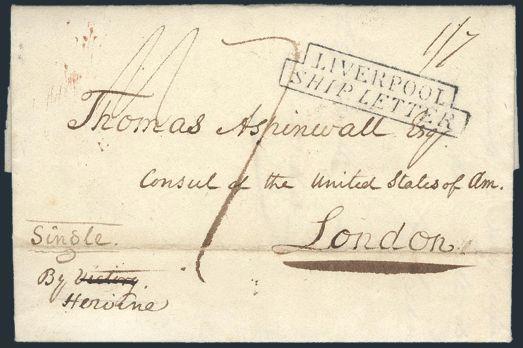 1/7
LIVERPOOL
SHIP LETTER
Thomas Aspinwall Esq
Consul of the United States of Am.
London
Single.
By Victory
Heroine